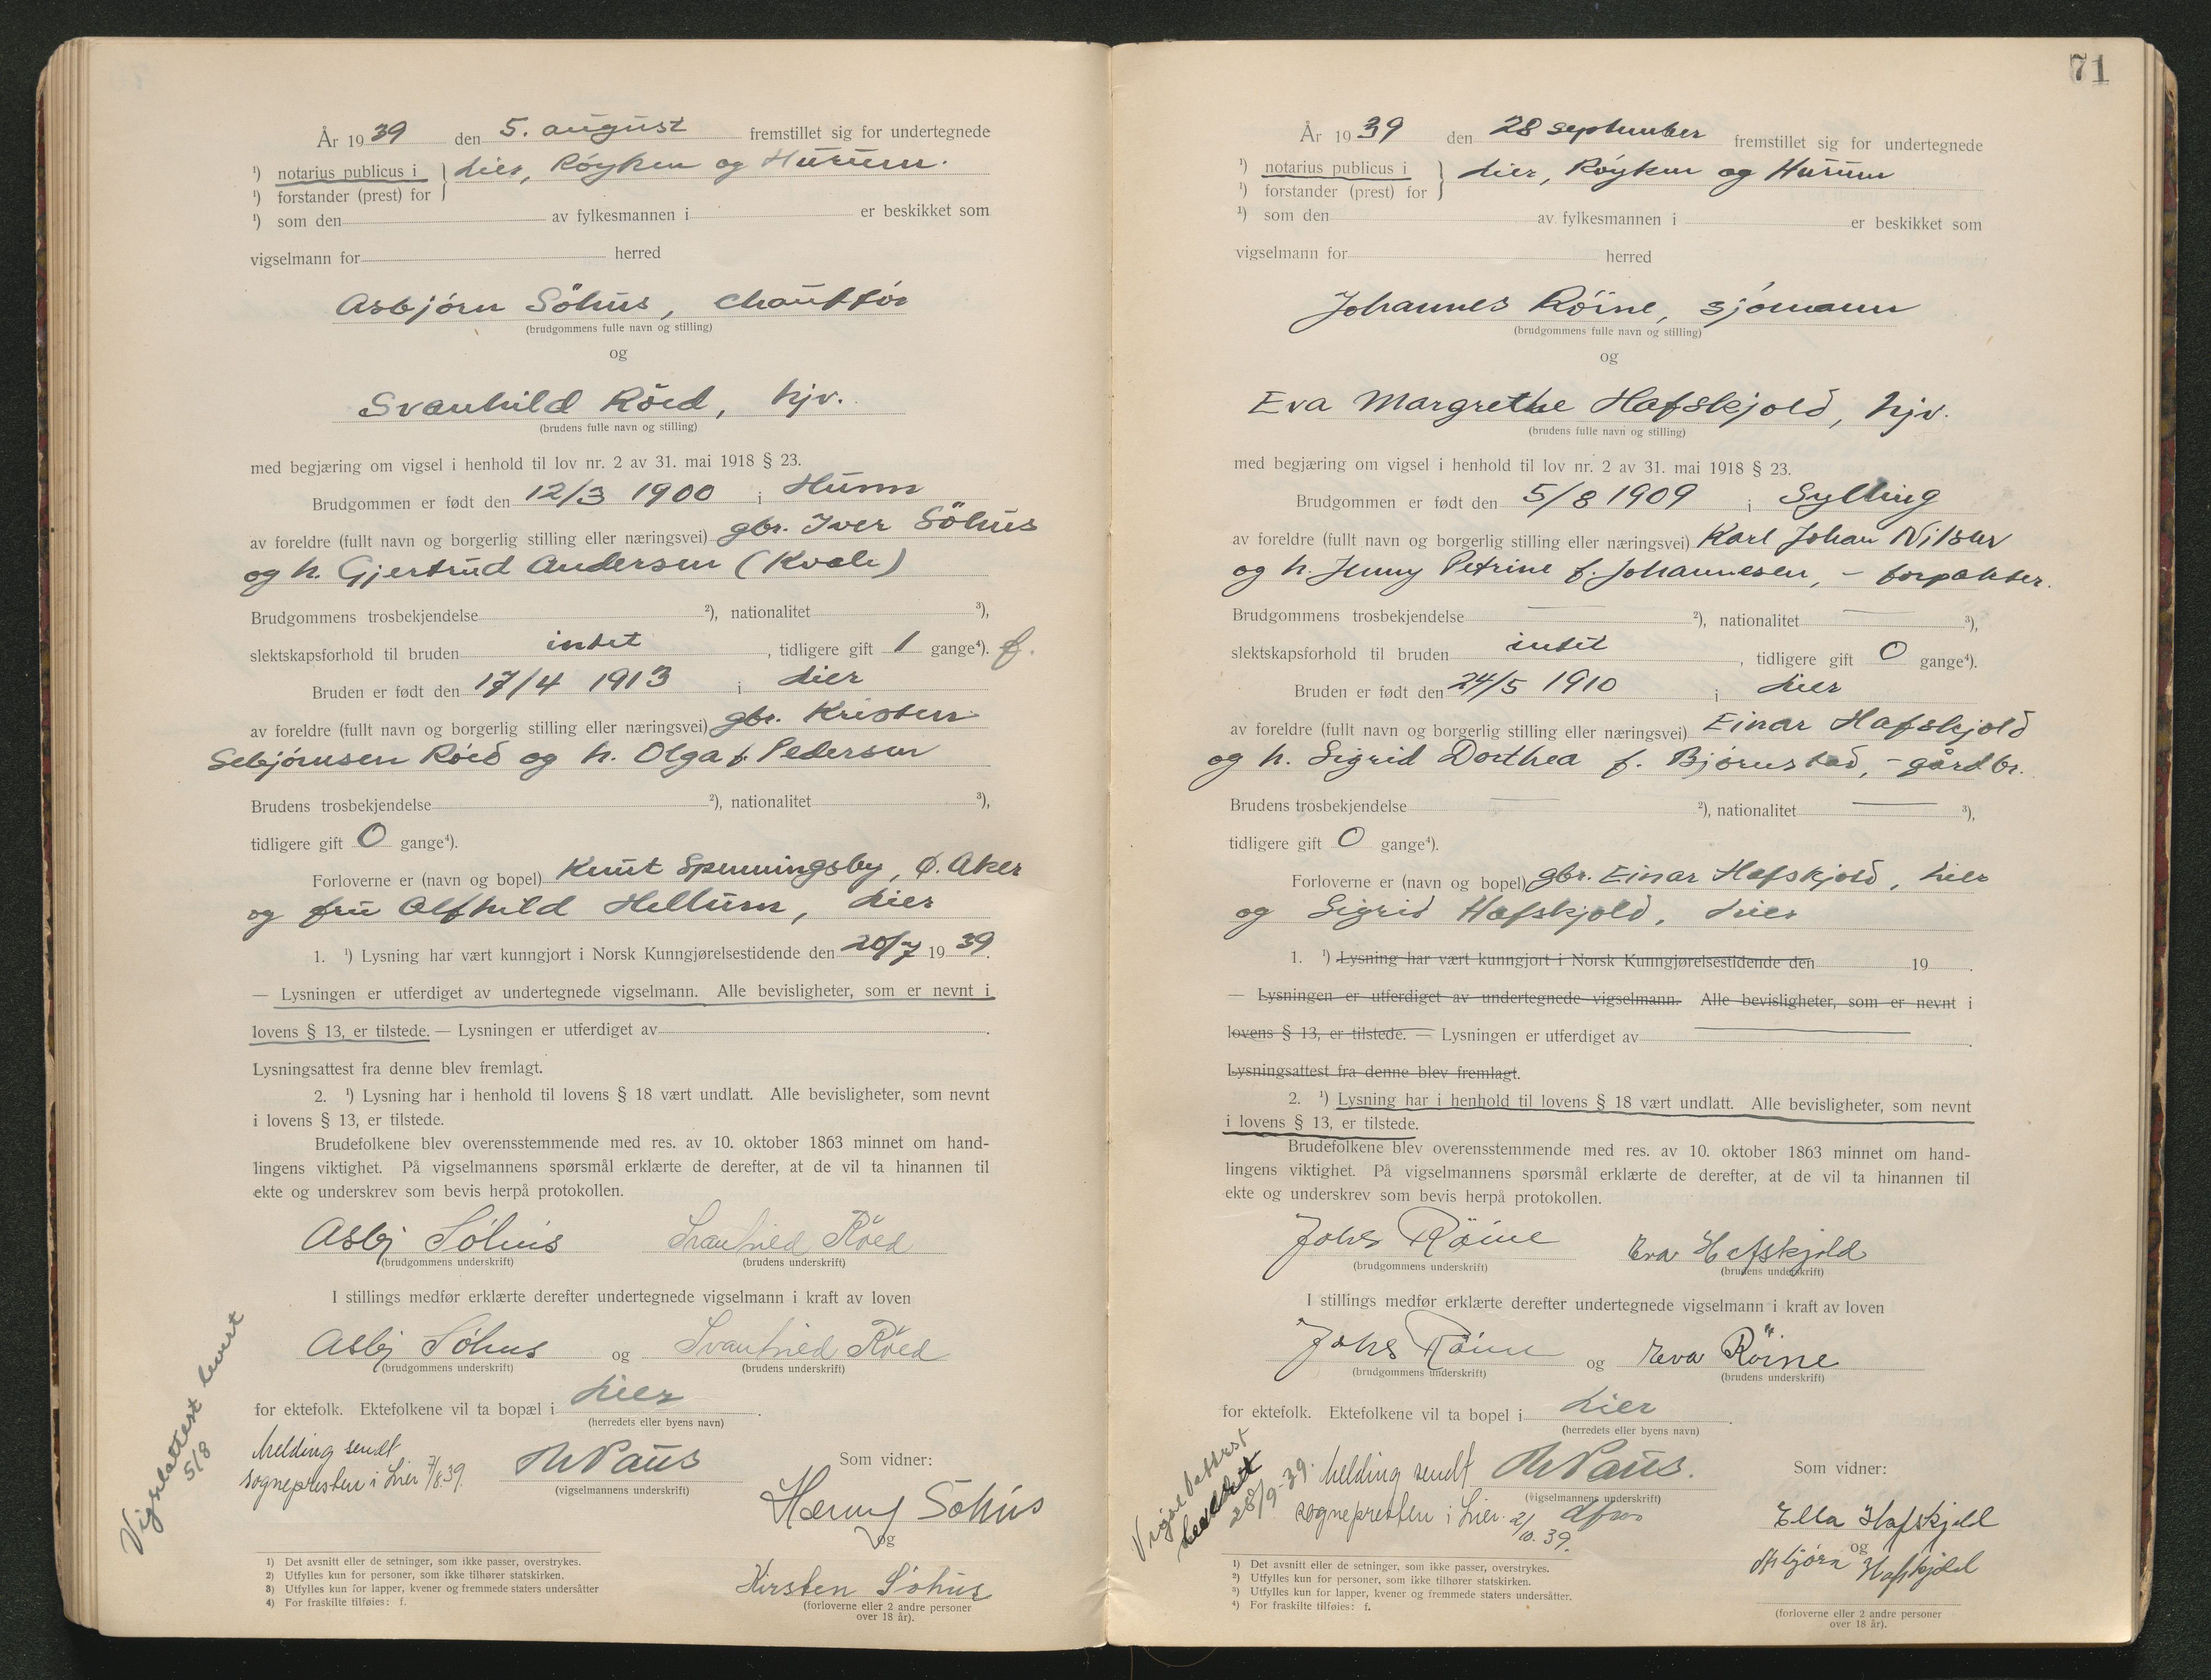 År 1939 den 5. august fremstillet sig for undertegnede
¹) notarius publicus i } Lier, Røyken og Hurum.
¹) forstander (prest) for
¹) som den av fylkesmannen i er beskikket som
vigselmann for herred
Asbjørn Söhus, chauffør
(brudgommens fulle navn og stilling)
og
Svanhild Röed, hjv.
(brudens fulle navn og stilling)
med begjæring om vigsel i henhold til lov nr. 2 av 31. mai 1918 § 23.
Brudgommen er født den 12/3 1900 i
av foreldre (fullt navn og borgerlig stilling eller næringsvei) gbr. Iver Söhus
og h. Gjertrud Andersen (Kvale)
Brudgommens trosbekjendelse ²), nationalitet ³),
slektskapsforhold til bruden intet, tidligere gift 1 gange⁴). f.
Bruden er født den 17/4 1913 i Lier
av foreldre (fullt navn og borgerlig stilling eller næringsvei) gbr. Kristen
Sebjørnsen Röed og h. Olga f. Pedersen
Brudens trosbekjendelse ²), nationalitet ³),
tidligere gift 0 gange⁴).
Forloverne er (navn og bopel) Knut Spenningsby, Ø. Aker
og fru Alfhild Hellum, Lier
1. ¹) Lysning har vært kunngjort i Norsk Kunngjørelsestidende den 20/7 1939.
— Lysningen er utferdiget av undertegnede vigselmann. Alle bevisligheter, som er nevnt i
lovens § 13, er tilstede. — Lysningen er utferdiget av .
Lysningsattest fra denne blev fremlagt.
2. ¹) Lysning har i henhold til lovens § 18 vært undlatt. Alle bevisligheter, som nevnt
i lovens § 13, er tilstede.
Brudefolkene blev overensstemmende med res. av 10. oktober 1863 minnet om hand-
lingens viktighet. På vigselmannens spørsmål erklærte de derefter, at de vil ta hinannen til
ekte og underskrev som bevis herpå protokollen.
Asbj Söhus Svanhild Röed
(brudgommens underskrift) (brudens underskrift)
I stillings medfør erklærte derefter undertegnede vigselmann i kraft av loven
Asbj Söhus og Svanhild Röed
(brudgommens underskrift) (brudens underskrift)
for ektefolk. Ektefolkene vil ta bopæl i Lier.
(herredets eller byens navn)
Vigselattest levert
5/8
Melding sendt
sognepresten i Lier 7/8.39.
Paus
(vigselmannens underskrift)
Som vidner:
Henny Söhus
og
Kirsten Söhus
(forloverne eller 2 andre personer
over 18 år).
1) Det avsnitt eller de setninger, som ikke passer, overstrykes.
2) Utfylles kun for personer, som ikke tilhører statskirken.
3) Utfylles kun for lapper, kvener og fremmede staters undersåtter
4) For fraskilte tilføies: f.
71
År 1939 den 28 september fremstillet sig for undertegnede
¹) notarius publicus i } Lier, Røyken og Hurum
¹) forstander (prest) for
¹) som den av fylkesmannen i er beskikket som
vigselmann for herred
Johannes Röine, sjømann
(brudgommens fulle navn og stilling)
og
Eva Margrethe Hafskjold, hjv.
(brudens fulle navn og stilling)
med begjæring om vigsel i henhold til lov nr. 2 av 31. mai 1918 § 23.
Brudgommen er født den 5/8 1909 i Sylling
av foreldre (fullt navn og borgerlig stilling eller næringsvei) Karl Johan Nilsen
og h. Jenny Petrine f. Johannesen, - forpakter.
Brudgommens trosbekjendelse — ²), nationalitet — ³),
slektskapsforhold til bruden intet, tidligere gift 0 gange⁴).
Bruden er født den 24/5 1910 i Lier
av foreldre (fullt navn og borgerlig stilling eller næringsvei) Einar Hafskjold
og h. Sigrid Dorthea f. Bjørnstad, - gårdbr.
Brudens trosbekjendelse — ²), nationalitet — ³),
tidligere gift 0 gange⁴).
Forloverne er (navn og bopel) gbr. Einar Hafskjold, Lier
og Sigrid Hafskjold, Lier
1. ¹) Lysning har vært kunngjort i Norsk Kunngjørelsestidende den 19 .
— Lysningen er utferdiget av undertegnede vigselmann. Alle bevisligheter, som er nevnt i
lovens § 13, er tilstede. — Lysningen er utferdiget av — .
Lysningsattest fra denne blev fremlagt.
2. ¹) Lysning har i henhold til lovens § 18 vært undlatt. Alle bevisligheter, som nevnt
i lovens § 13, er tilstede.
Brudefolkene blev overensstemmende med res. av 10. oktober 1863 minnet om hand-
lingens viktighet. På vigselmannens spørsmål erklærte de derefter, at de vil ta hinannen til
ekte og underskrev som bevis herpå protokollen.
Johs Röine Eva Hafskjold
(brudgommens underskrift) (brudens underskrift)
I stillings medfør erklærte derefter undertegnede vigselmann i kraft av loven
Johs Röine og Eva Röine
(brudgommens underskrift) (brudens underskrift)
for ektefolk. Ektefolkene vil ta bopel i Lier.
(herredets eller byens navn)
Vigselattest
28/9-39.
Melding sendt
sognepresten i Lier. 2/10.39.
Paus.
(vigselmannens underskrift)
Som vidner:
Ella Hafskjold
og
Asbjørn Hafskjold
(forloverne eller 2 andre personer
over 18 år).
1) Det avsnitt eller de setninger, som ikke passer, overstrykes.
2) Utfylles kun for personer, som ikke tilhører statskirken.
3) Utfylles kun for lapper, kvener og fremmede staters undersåtter.
4) For fraskilte tilføies: f.